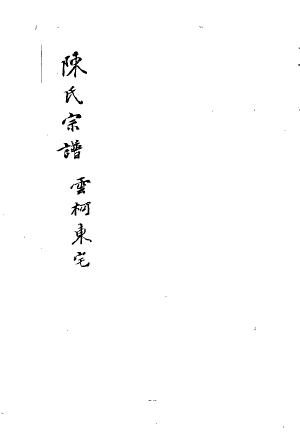 陳氏宗譜 雲柯東宅